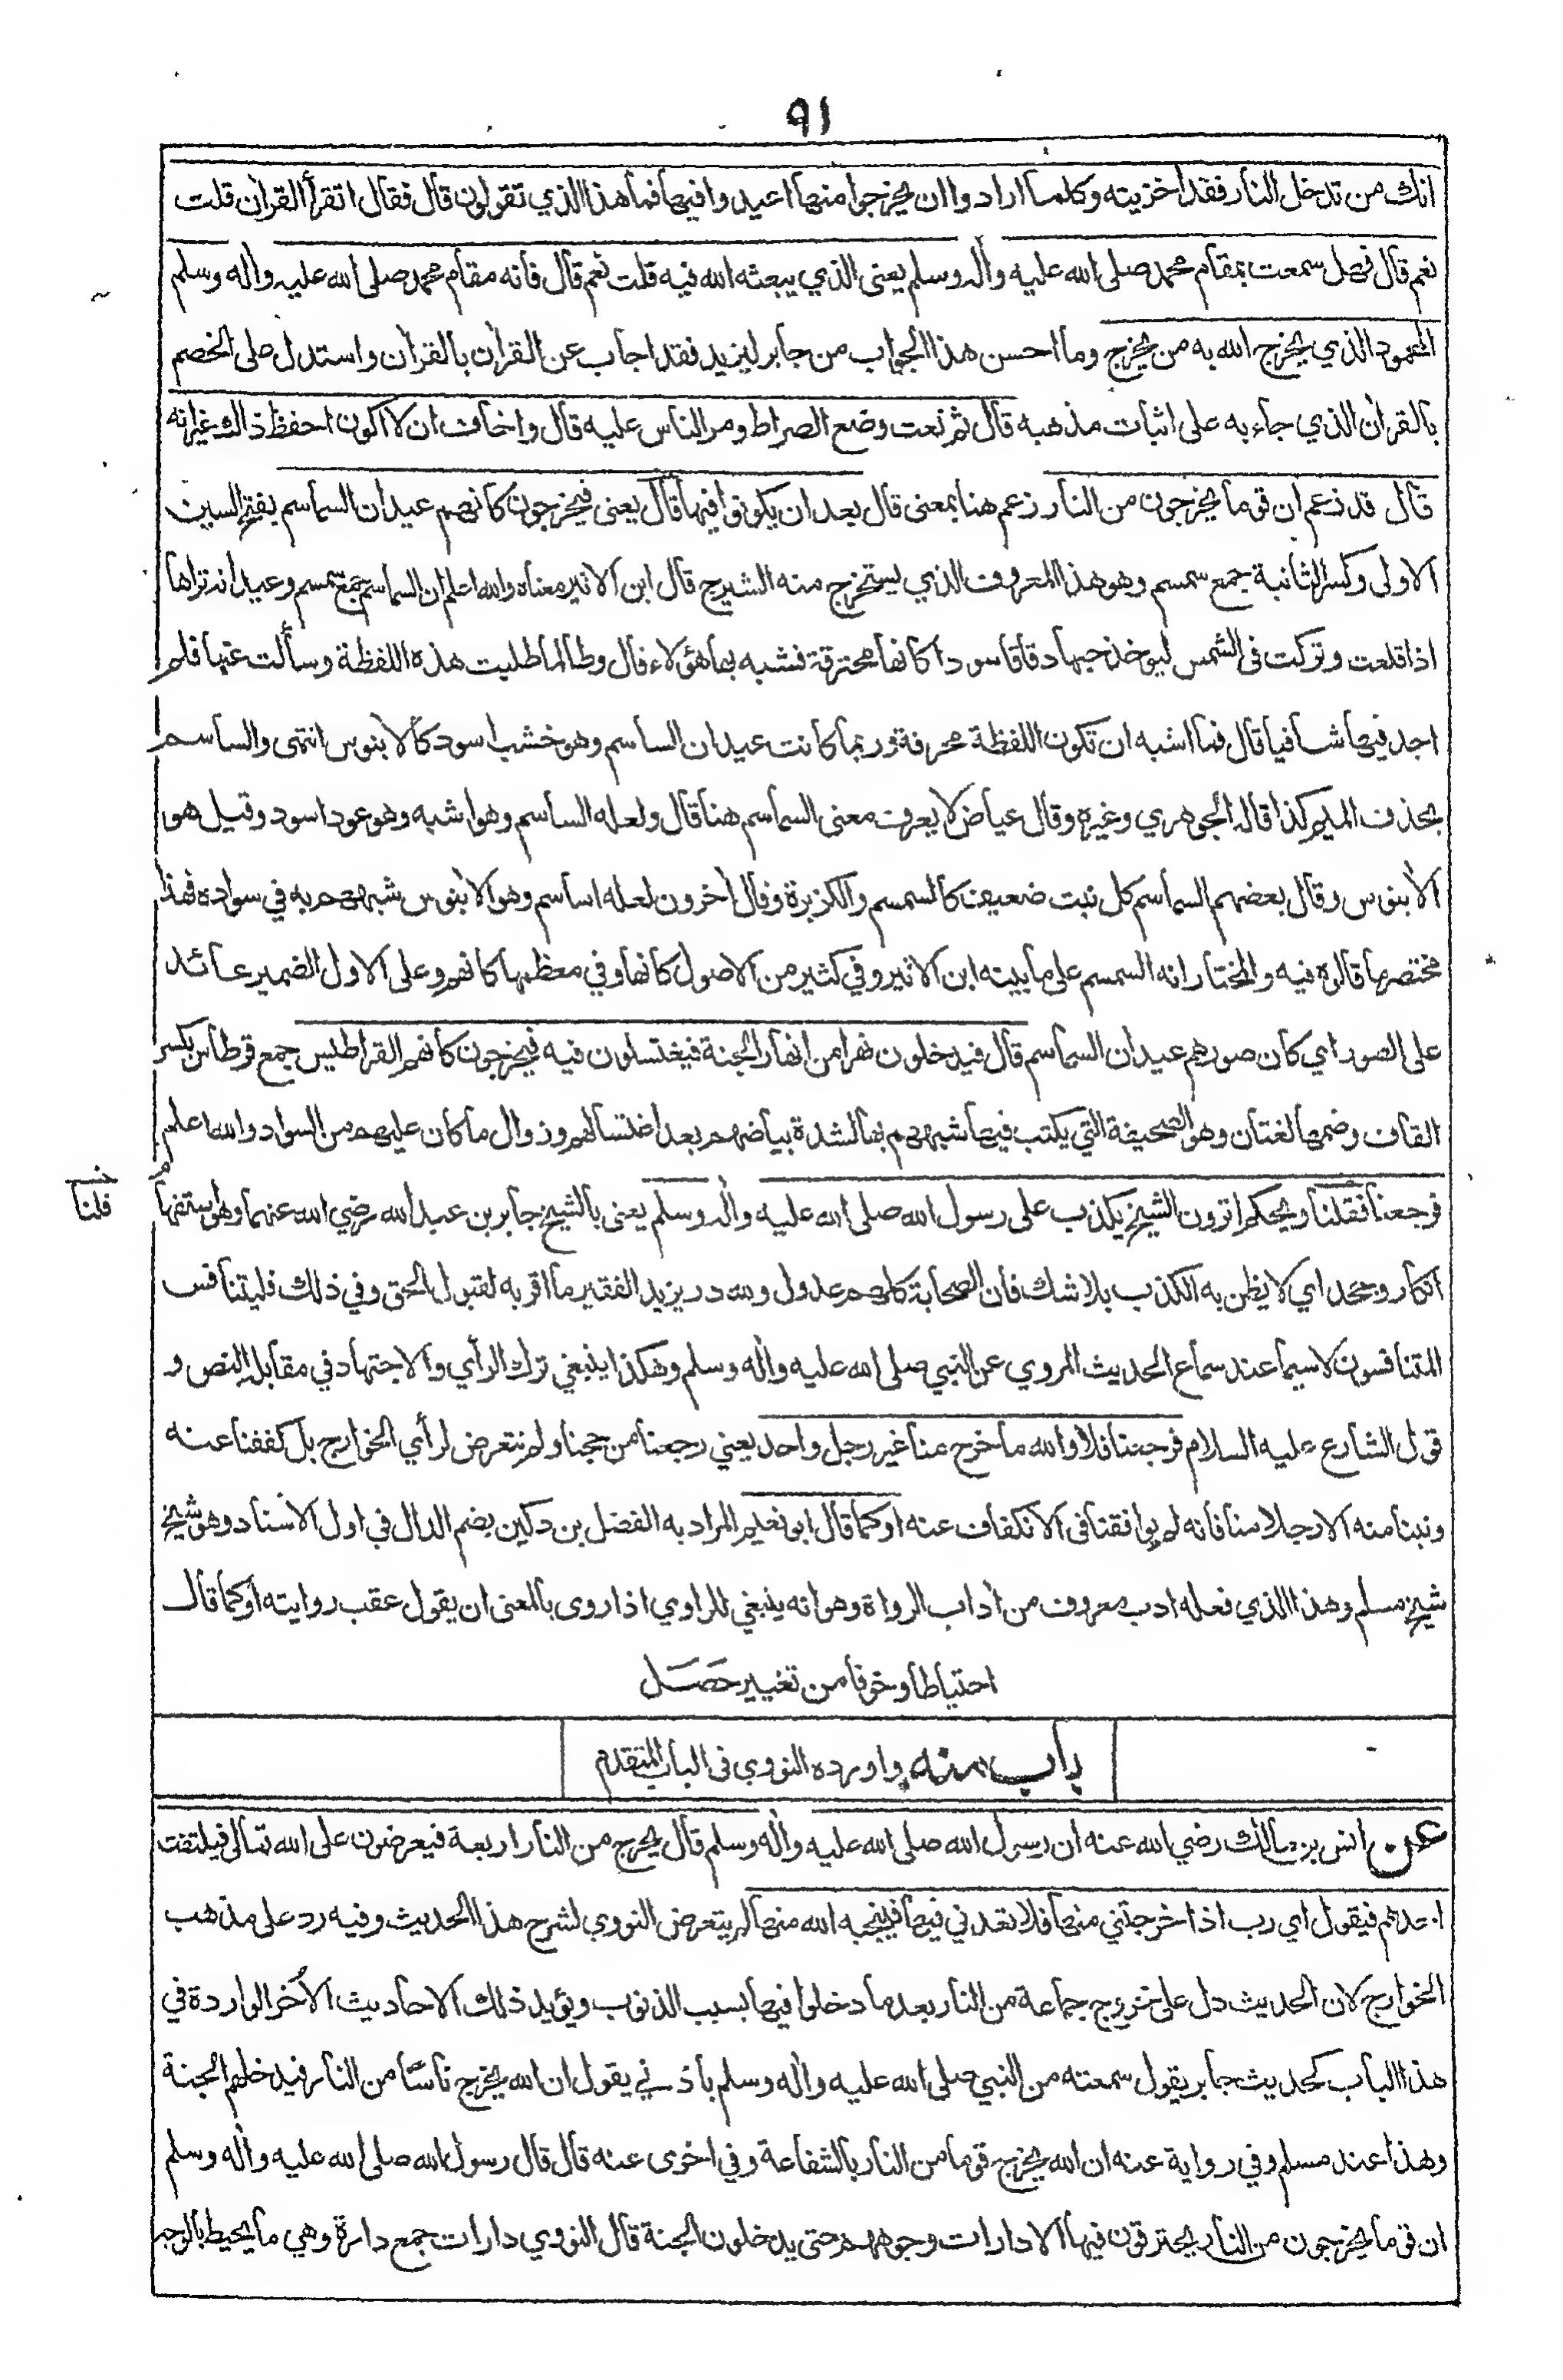 ٩١
انك من تدخل النار فقد اخزيته وكلما ارادوا ان يخرجوا منها اعيدوا فيها فما هذا الذي تقولون قال فقال اتقرأ القرأن قلت
نعم قال فهل سمعت بمقام محمد صلى الله عليه وأله وسلم يعنى الذي يبعثه الله فيه قلت نعم قال فانه مقام محمد صلى الله عليه وأله وسلم
المحمود الذي يخرج الله به من يخرج وما احسن هذا الجواب من جابر ليزيد فقد اجاب عن القرأن بالقرأن واستدل على الخصم
بالقرأن الذي جاء به على اثبات مذهبه قال ثم نعت وضع الصراط ومر الناس عليه قال واخاف ان لا اكون احفظ ذالك غير انه
قال قد زعم ان قوما يخرجون من النار زعم هنا بمعنى قال بعد ان يكونوا فيها قال يعنى فيخرجون كانهم عيدان السماسم بفتح السين
الاولى وكسر الثانية جمع سمسم وهو هذا المعروف الذي يستخرج منه الشيرج قال ابن الاثير معناه والله اعلم ان السماسم جمع سمسم وعيدانه تراها
اذا قلعت وتركت فى الشمس ليوخذ حبها دقاقا سودا كانها محترقة فشبه بها هؤلاء قال وطالما طلبت هذه اللفظة وسألت عنها فلم
اجد فيها شافيا قال فما اشبه ان تكون اللفظة محرفة وربما كانت عيدان الساسم وهو خشب اسود كالأبنوس انتهى والساسم
بحذف الميم كذا قاله الجوهري وغيره وقال عياض لا يعرف معنى السماسم هنا قال ولعله الساسم وهو اشبه وهو عود اسود وقيل هو
الأبنوس وقال بعضهم السماسم كل نبت ضعيف كالسمسم والكزبرة وقال أخرون لعله اساسم وهو الأبنوس شبههم به في سواده فهذا
مختصر ما قالوه فيه والمختار انه السمسم على ما بينه ابن الاثير وفي كثير من الاصول كانها وفي معظمها كانهم وعلى الاول الضمير عائد
على الصور اي كان صورهم عيدان السماسم قال فيدخلون نهرا من انهار الجنة فيغتسلون فيه فيخرجون كانهم القراطيس جمع قرطاس بكسر
القاف وضمها لغتان وهو الصحيفة التي يكتب فيها شبههم بها لشدة بياضهم بعد اغتسالهم وزوال ما كان عليهم من السواد والله اعلم
فرجعنا فقلنا ويحكم اترون الشيخ يكذب على رسول الله صلى الله عليه وأله وسلم يعنى بالشيخ جابر بن عبد الله رضي الله عنهما وهو استفهام
قلنا
انكار وجحد اي لا يظن به الكذب بلا شك فان الصحابة كلهم عدول ولله در يزيد الفقير ما اقربه لقبول الحق وفي ذلك فليتنافس
المتنافسون لا سيما عند سماع الحديث المروي عن النبي صلى الله عليه وأله وسلم وهكذا ينبغي ترك الرأي والاجتهاد في مقابلة النص و
قول الشارع عليه السلام فرجعنا فلا والله ما خرج منا غير رجل واحد يعني رجعنا من حجنا ولم نتعرض لرأي الخوارج بل كففنا عنه
وتبنا منه الا رجلا منا فانه لم يوافقنا فى الانكفاف عنه اوكما قال ابو نعيم المراد به الفضل بن دكين بضم الدال في اول الاسناد وهو شيخ
شيخ مسلم وهذا الذي فعله ادب معروف من أداب الرواة وهو انه ينبغي للراوي اذا روى بالمعنى ان يقول عقب روايته اوكما قال
احتياطا وخوفا من تغيير حصل
باب منه واورده النووي فى الباب المتقدم
عن انس بن مالك رضي الله عنه ان رسول الله صلى الله عليه وأله وسلم قال يخرج من النار اربعة فيعرضون على الله تعالى فيلتفت
احدهم فيقول اي رب اذا خرجتني منها فلا تعدني فيها فينجيه الله منها لم يتعرض النووي لشرح هذا الحديث وفيه رد على مذهب
الخوارج لان الحديث دل على خروج جماعة من النار بعد ما دخلوا فيها بسبب الذنوب ويؤيد ذلك الاحاديث الأخر الواردة في
هذا الباب كحديث جابر يقول سمعته من النبي صلى الله عليه وأله وسلم باذني يقول ان الله يخرج ناسًا من النار فيدخلهم الجنة
وهذا عند مسلم وفي رواية عنه ان الله يخرج قوما من النار بالشفاعة وفي اخرى عنه قال قال رسول الله صلى الله عليه وأله وسلم
ان قوما يخرجون من النار يحترقون فيها الا دارات وجوههم حتى يدخلون الجنة قال النووي دارات جمع دارة وهي ما يحيط بالوجه